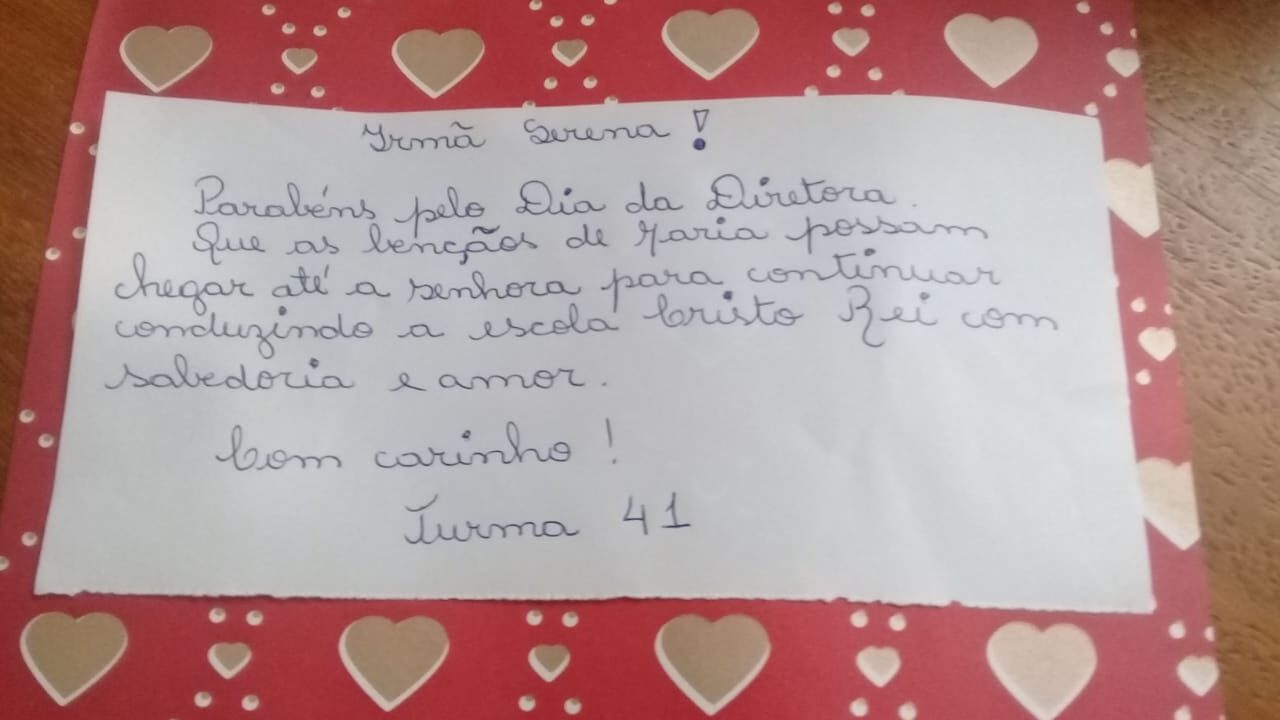 Irmã Serena!
Parabéns pelo Dia da Diretora.
Que as bençãos de Maria possam
chegar até a senhora para continuar
conduzindo a escola Cristo Rei com
sabedoria e amor.
Com carinho!
Turma 41